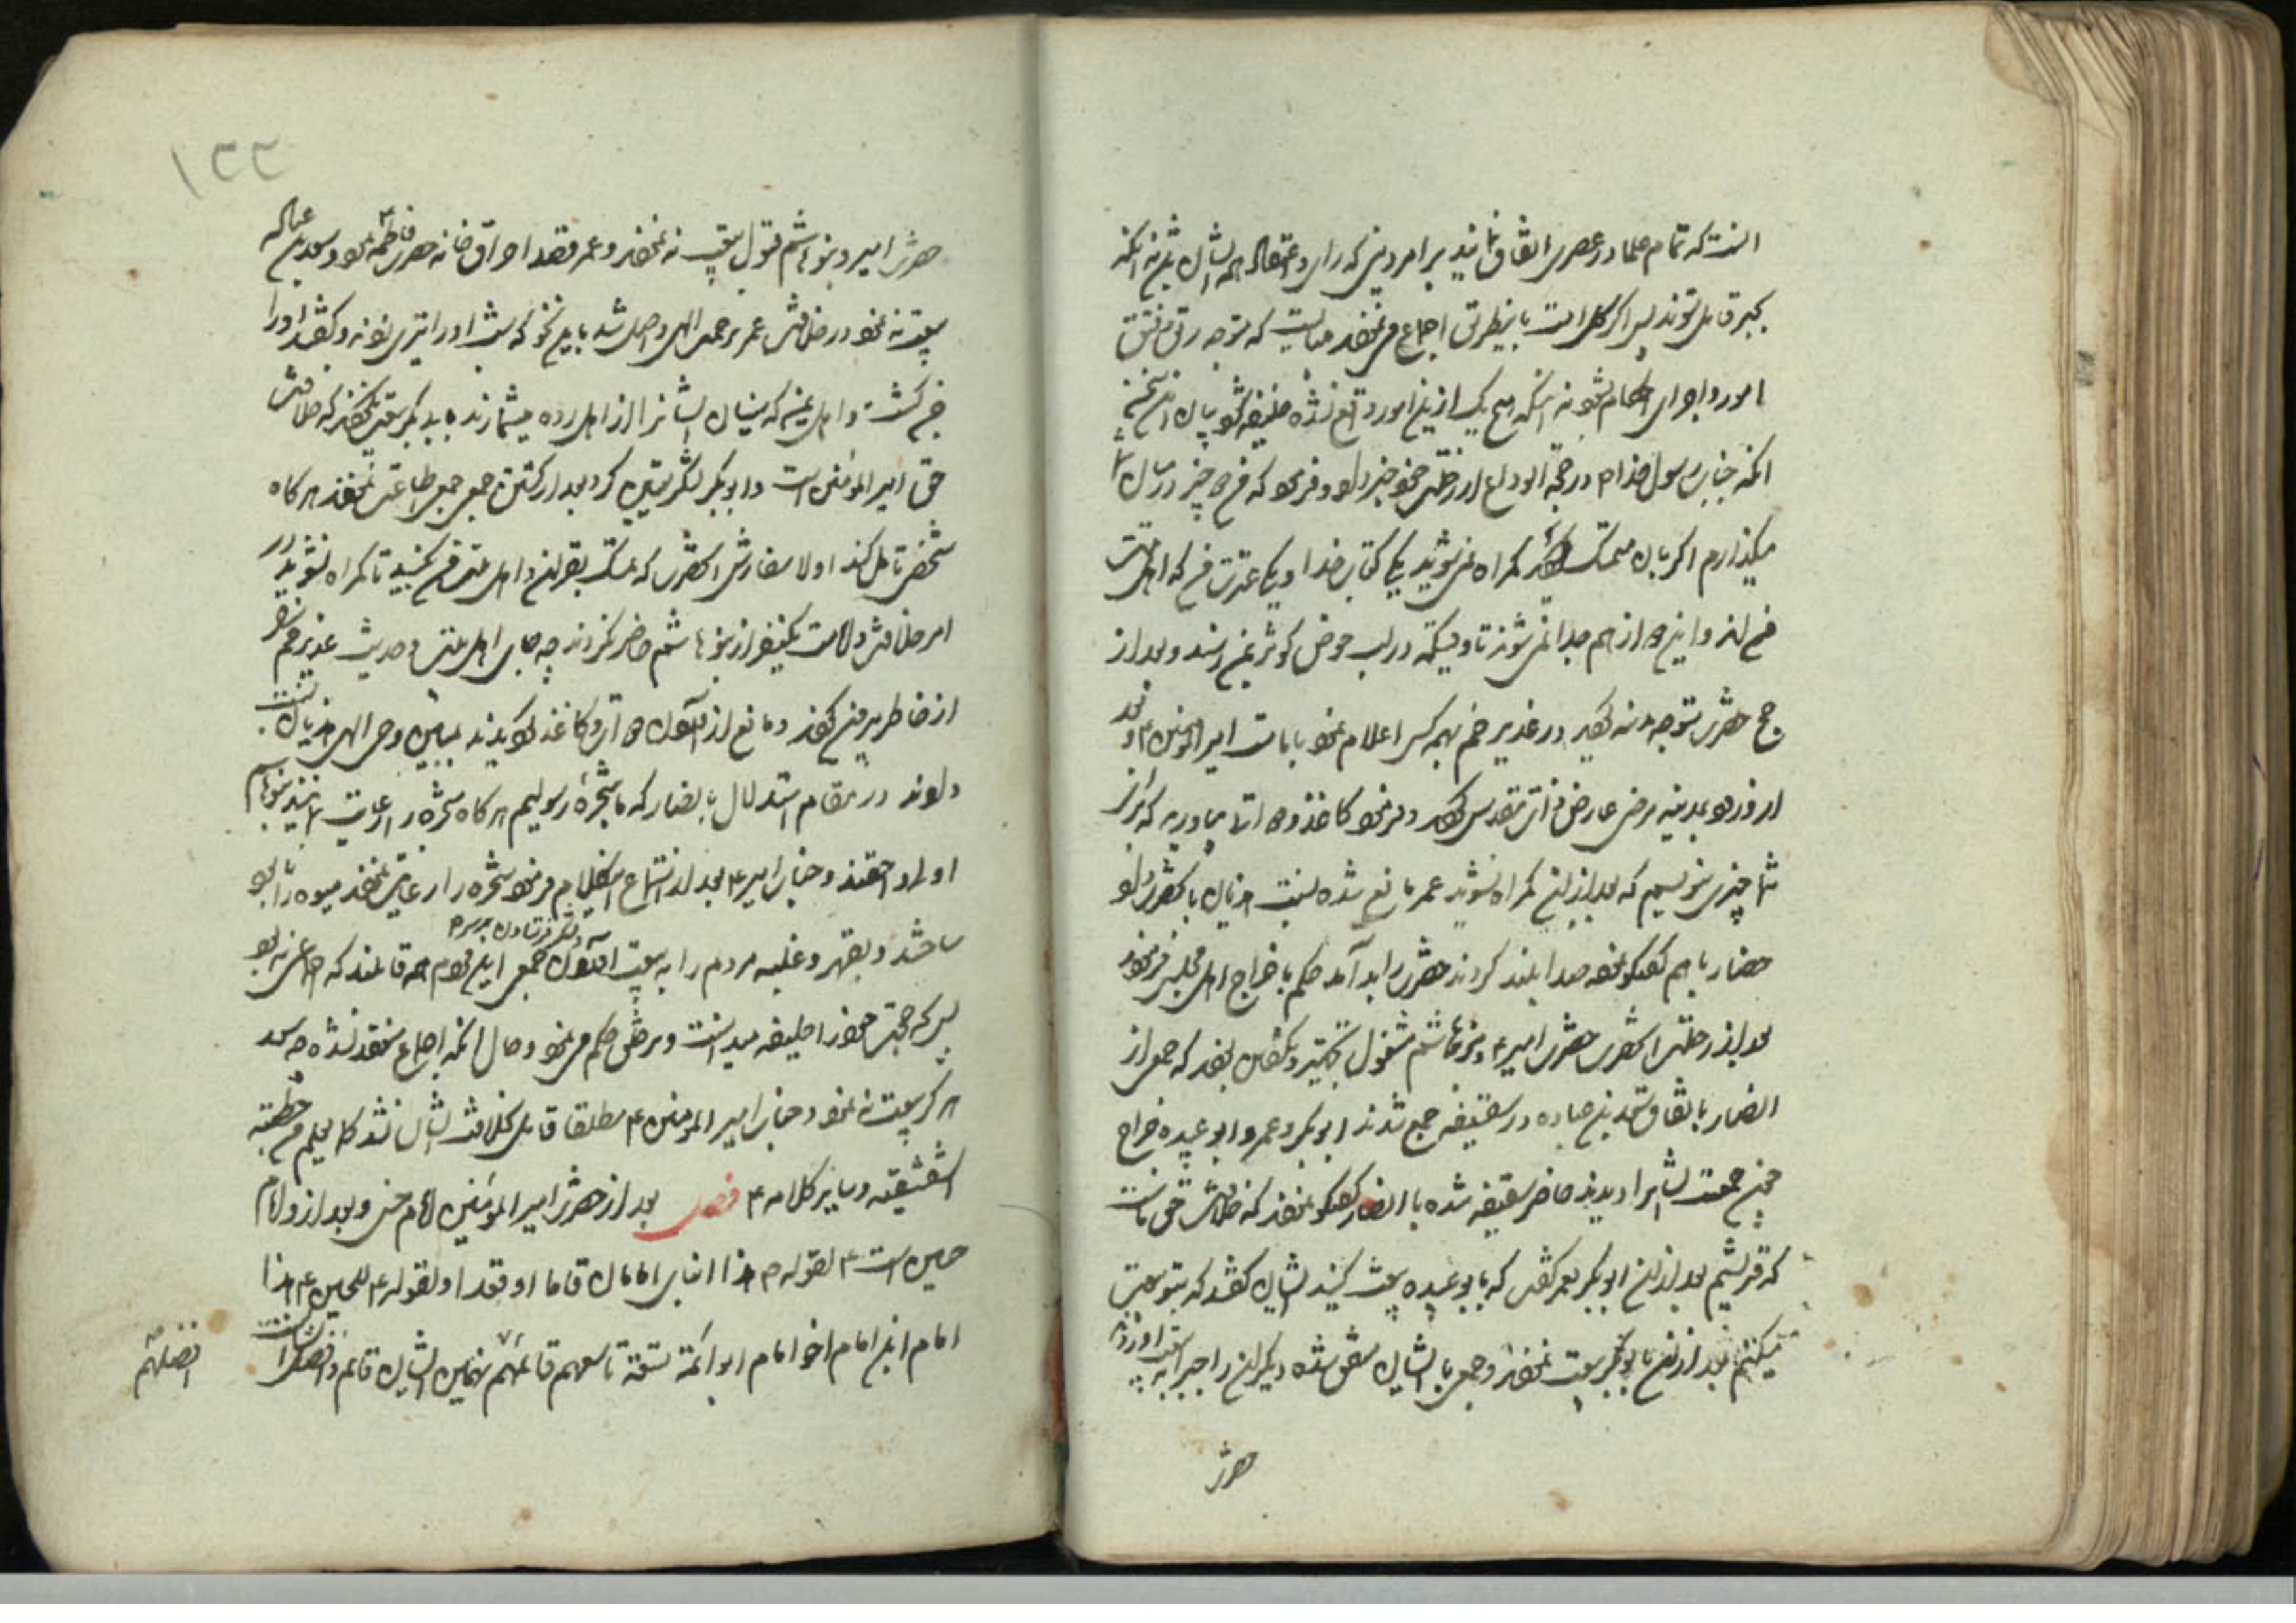 آنست که تمام علما در عصری اتفاق نمایند بر امر دینی که رای و اعتقاد همه ایشان این نه آنکه
بجبر قایل شوند پس اگر کل امت باینطریق اجماع می نمودند میبایست که متوجه رتق و فتق
امور و اجرای احکام شود نه آنکه هیچ یک ازین امور واقع نشده خلیفه شود بیان این سخن
آنکه جناب رسول خدا م در حجة الوداع از رحلتش خود خبر داد و فرمود که من دو چیز در میان شما
میگذارم اگر بآن متمسک شوید گمراه نمی شوید یکی کتاب خدا و یکی عترت من که اهل بیت
من اند و این دو از هم جدا نمی شوند تا وقتیکه در لب حوض کوثر بمن رسند و بعد از
حج حضرت متوجه مدینه بودند در غدیر خم بهمه کس اعلام نمود بامامت امیر المؤمنین ع و بعد
از ورود بمدینه مرضی عارض ذات مقدس شد و فرمود کاغذ و دوات بیاورید که برای
شما چیزی بنویسیم که بعد از من گمراه نشوید عمر مانع شده نسبت هذیان بآنحضرت داد
حضار با هم گفتگو نموده صدا بلند کردند حضرت را بد آمد حکم باخراج اهل مجلس فرمود
بعد از رحلت آنحضرت حضرت امیر ع و بنی هاشم مشغول تجهیز و تکفین بودند که جمعی از
انصار باتفاق سعد بن عباده در سقیفه جمع شدند ابو بکر و عمر و ابو عبیده جراح
چون جمعیت ایشانرا دیدند حاضر سقیفه شده با انصار گفتگو نمودند که خلافت حق ماست
که قریشیم بعد از آن ابو بکر بعمر گفت که با ابو عبیده بیعت کنید ایشان گفتند که بتو بیعت
میکنیم بعد از آن با ابو بکر بیعت نمودند و جمعی با ایشان متفق شده دیگران را جبرا به بیعت او آوردند
حضرت
۲۲۱
حضرت امیر و بنو هاشم قبول بیعت نه نمودند و عمر قصد احراق خانه حضرت فاطمه ع نمود و سعد بن عباده
بیعت نه نمود در خلافت عمر برحمت الهی واصل شد باین نحو که شب او را تیری زدند و گفتند او را
جن کشت و اهل یمن که سنیان ایشانرا از اهل رده میشمارند به ابو بکر بیعت نکردند که خلافت
حق امیر المؤمنین است و ابو بکر لشکر تعیین کرد بعد از کشتن جمعی جمعی اطاعت نمودند هر گاه
شخصی تامل کند اولا سفارش آنحضرت که تمسک بقرآن و اهل بیت من بجویید تا گمراه نشوید در
امر خلافت و امامت یکنفر از بنو هاشم حاضر نکردند چه جای اهل بیت و حدیث غدیر خم را
از خاطر بیرون کردند و مانع از آوردن دوات و کاغذ گردیدند بمبین وحی الهی هذیان نسبت
دادند در مقام استدلال بانصار که ما شجره رسولیم هر گاه شجره را رعایت نمایند بنو هاشم
اولی و احقند و جناب امیر ع بعد از استماع این کلام فرمود شجره را رعایت نمودند میوه را نابود
ساختند و بقهر و غلبه مردم را به بیعت آوردن و لشکر فرستادن بر سر جمعی این قوم همه قائلند که اجماعی نبود
پس که بحجت خود را خلیفه میدانست و بر خلق حکم می نمود و حال آنکه اجماع منعقد نشده چه سعد
هرگز بیعت نه نمود و جناب امیر المؤمنین ع مطلقا قایل بخلافت ایشان نشد کما یعلم من خطبته
الشقشقیه و سایر کلامه ع فصل بعد از حضرت امیر المؤمنین امام حسن و بعد از و امام
حسین است ع لقوله ص هذا ابنای امامان قاما او قعدا و لقوله ص للحسین ع هذا
امام ابن امام اخو امام ابو ائمة تسعة تاسعهم قائمهم نهمین ایشان قایم و افضل ایشانست
افضلهم